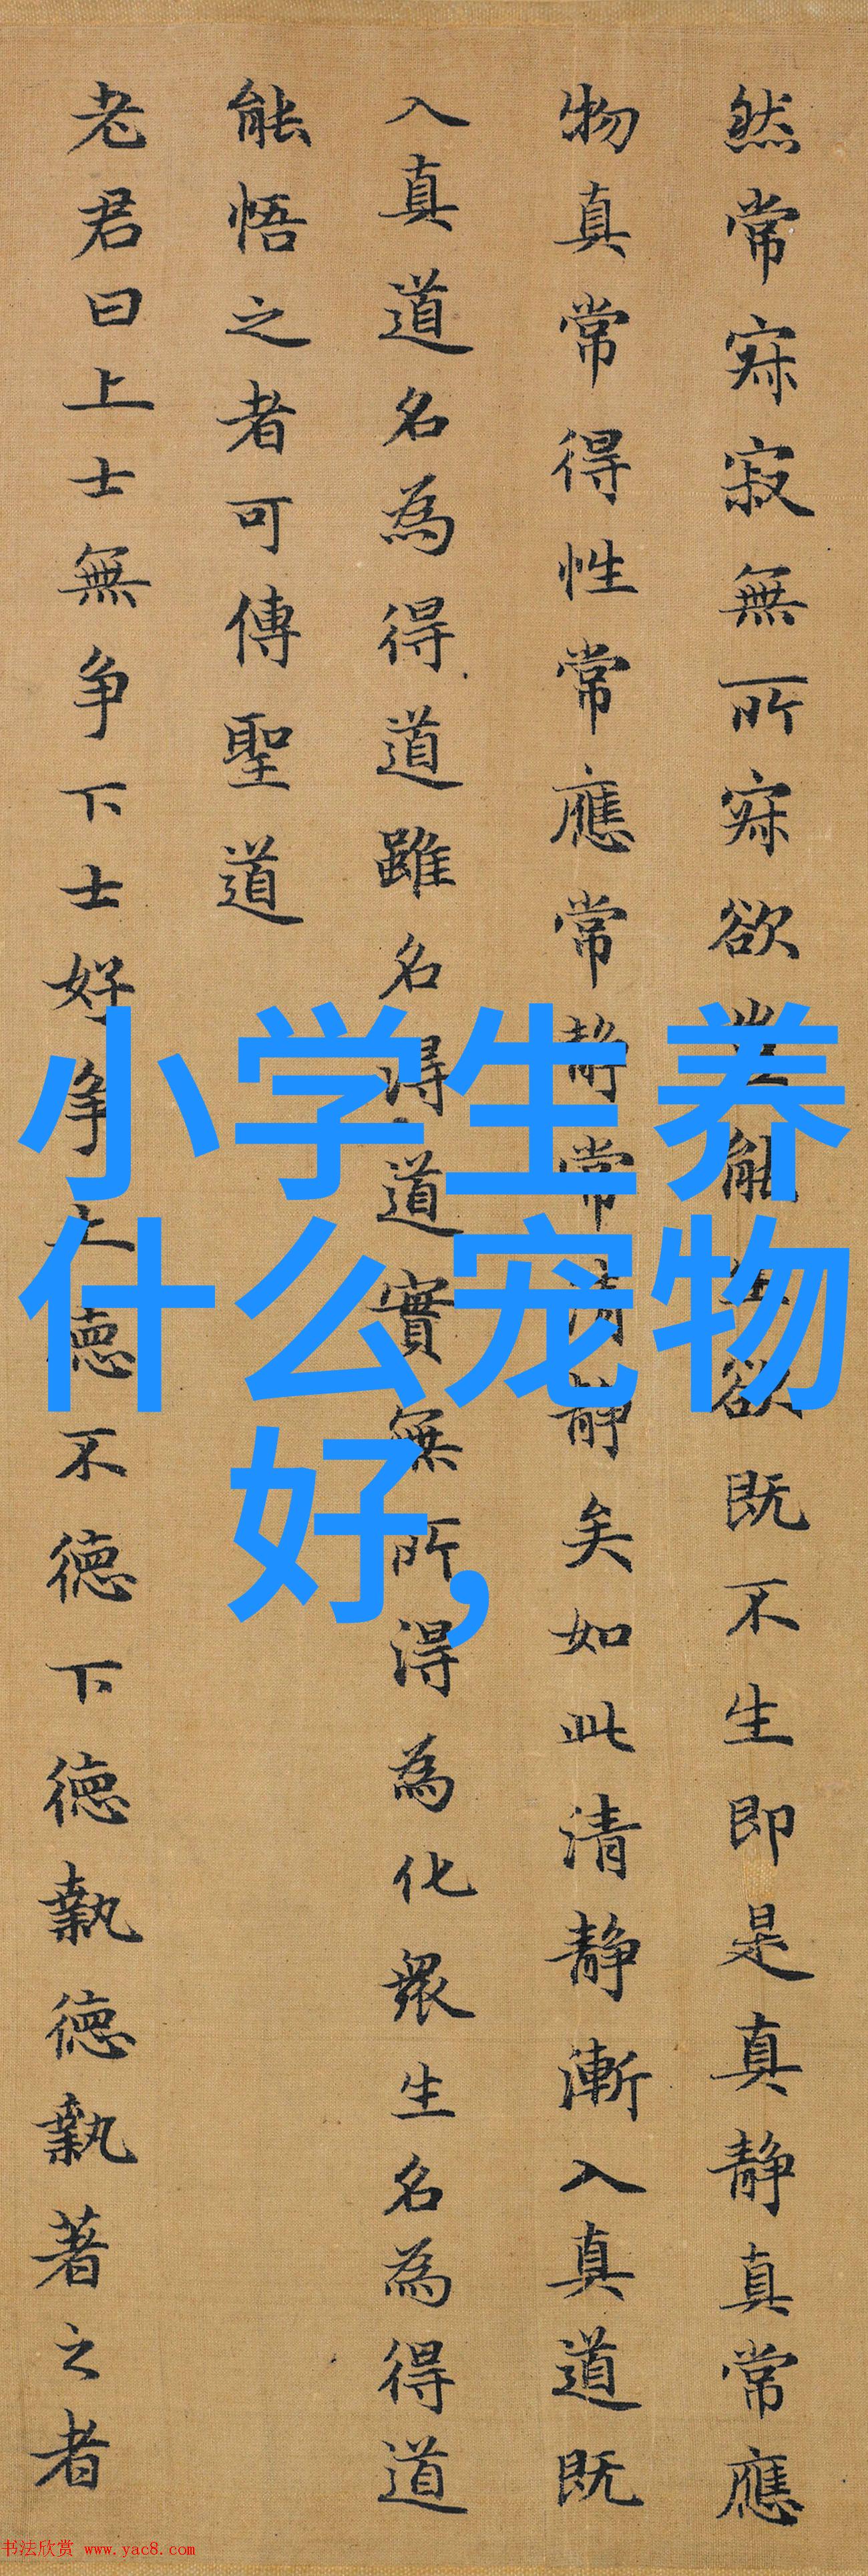 然常寂寂無所寂欲豈能生欲既不生即是真静真常應
物真常得性常應常静常清静矣如此清静漸入真道既
入真道名為得道雖名得道實無所得為化衆生名為得道
能悟之者可傳聖道
老君曰上士無争下士好争上德不德下德執德執著之者
小学生养
什么宠物
好,
书法欣赏 www.yac8.com